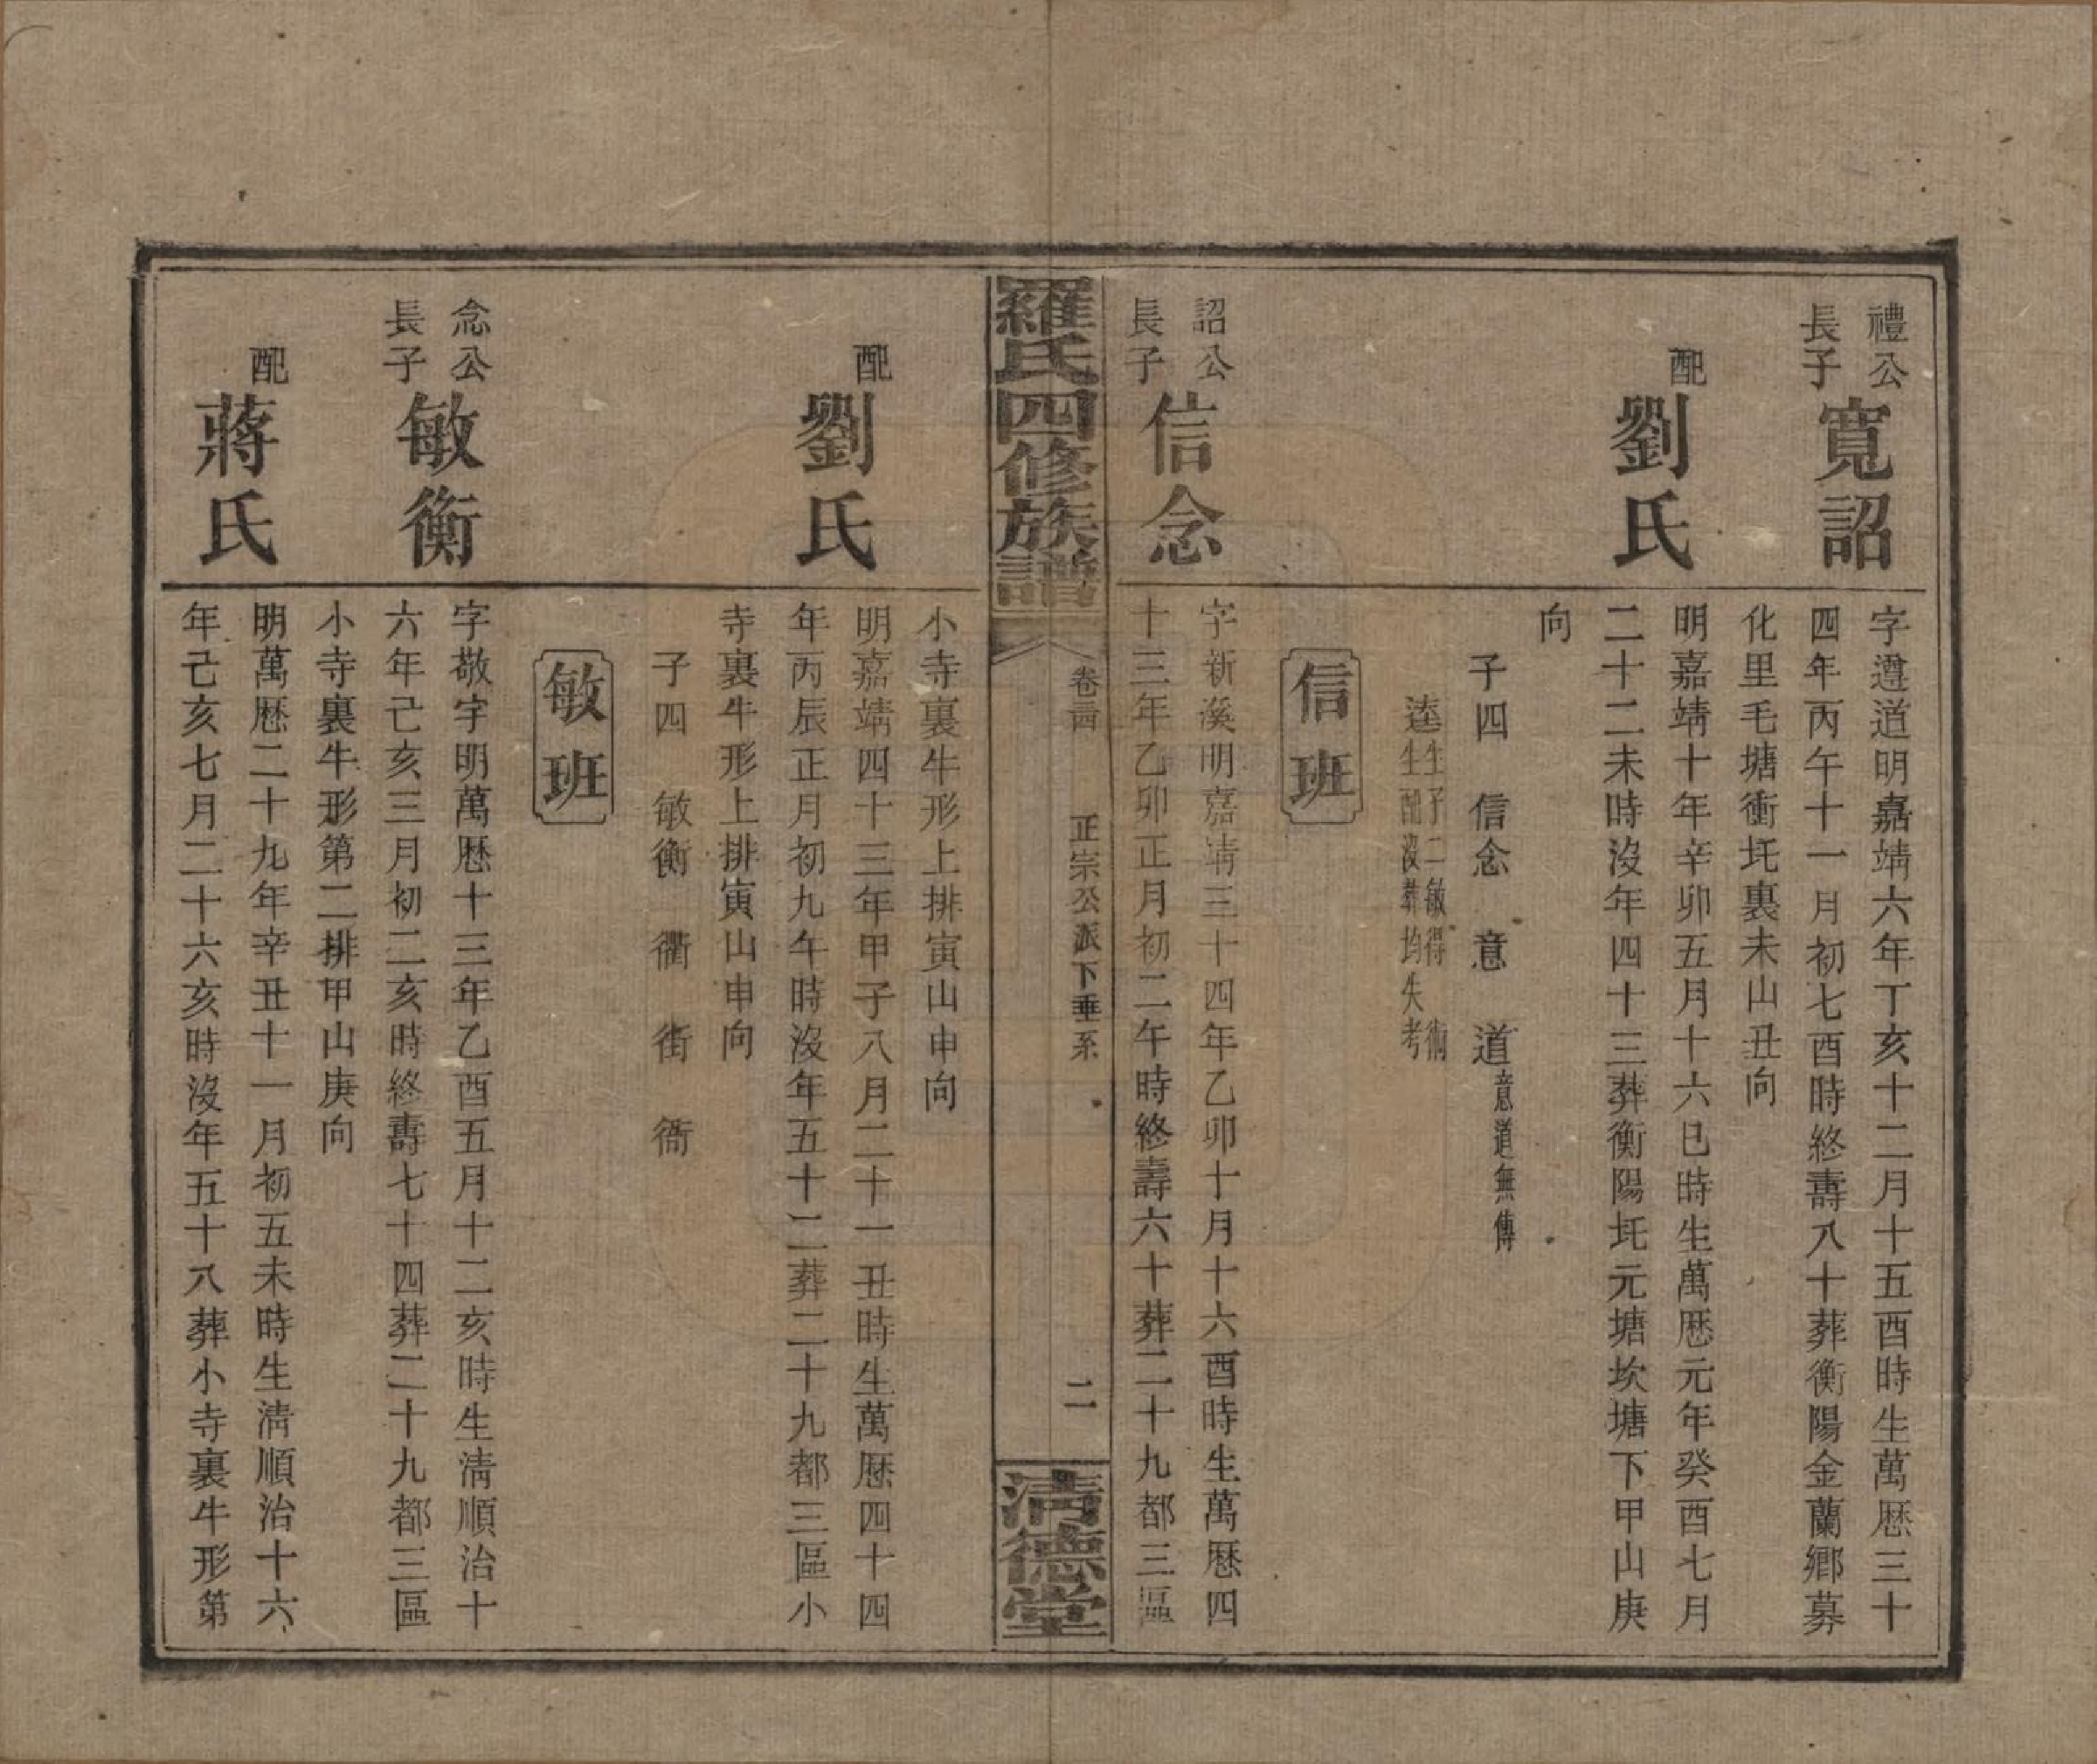 禮公
長子
寬詔
字遵道明嘉靖六年丁亥十二月十五酉時生萬歷三十
四年丙午十一月初七酉時終壽八十葬衡陽金蘭鄉募
化里毛塘衝圫裏未山丑向
配
劉氏
明嘉靖十年辛卯五月十六巳時生萬歷元年癸酉七月
二十二未時沒年四十三葬衡陽圫元塘坎塘下甲山庚
向
子四 信念 意 道 意道無傳
逵 生子二敏得 衚
生配沒葬均失考
信班
詔公
長子
信念
字新溪明嘉靖三十四年乙卯十月十六酉時生萬歷四
十三年乙卯正月初二午時終壽六十葬二十九都三區
羅氏四修族譜
卷
正宗公派下垂系
二
清德堂
小寺裏牛形上排寅山申向
配
劉氏
明嘉靖四十三年甲子八月二十一丑時生萬歷四十四
年丙辰正月初九午時沒年五十二葬二十九都三區小
寺裏牛形上排寅山申向
子四 敏衡 衢 街 衙
敏班
念公
長子
敏衡
字敬字明萬歷十三年乙酉五月十二亥時生清順治十
六年己亥三月初二亥時終壽七十四葬二十九都三區
小寺裏牛形第二排甲山庚向
配
蔣氏
明萬歷二十九年辛丑十一月初五未時生清順治十六
年己亥七月二十六亥時沒年五十八葬小寺裏牛形第